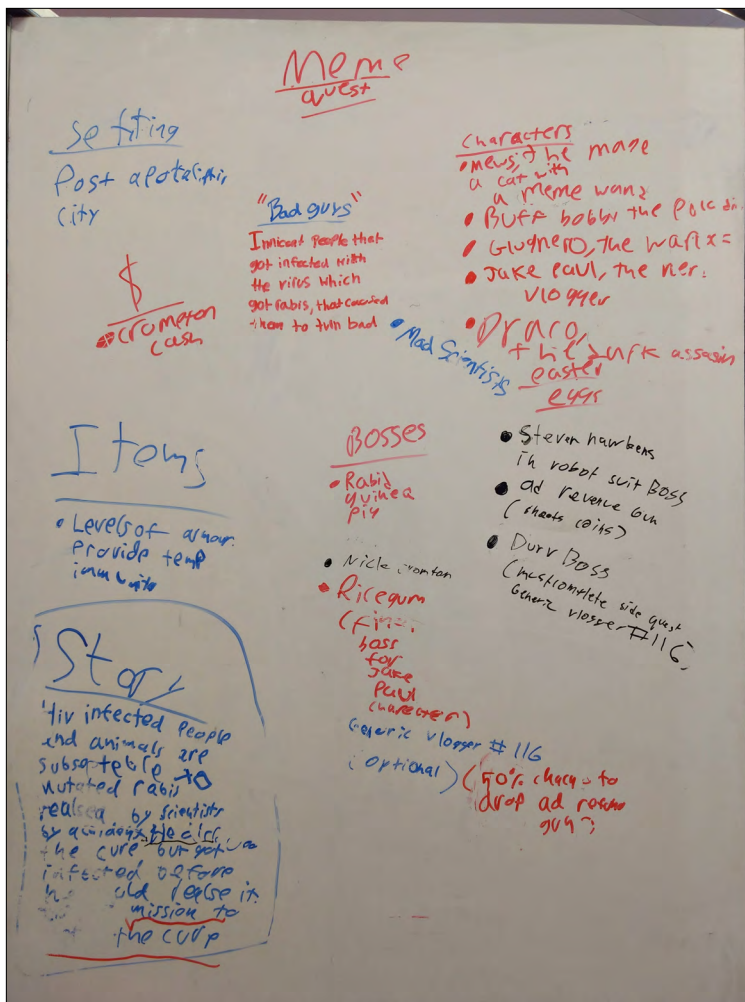 Meme
quest
setting
Post apotaliptic
city
$
crompton
cash
"Bad guys"
Innicent people that
got infected with
the virus which
got rabis, that caused
them to turn bad
• Mad Scientists
Characters
• mews, the mage
a cat with
a meme wand
• BUFF bobby the
• the
• Jake Paul, the
vlogger
• Draco,
the assasin
easter
eggs
• Steven hawkens
in robot suit BOSS
• ad revenue Gun
(shoots coins)
• Durv BOSS
(must complete side quest
Generic vlogger #116)
Items
• Levels of armour
Provide temp
immunity
Bosses
• Rabid
guinea
pig
• Nick crompton
• Ricegum
(final
boss
for
Jake
Paul
character)
Generic vlogger #116
(optional)
(50% chance to
drop ad revenue
gun)
Story
Hiv infected People
and animals are
subseptible to
mutated rabis
realsed by scientists
by
the cure, but got
infected before
he realse it.
mission to
the cure